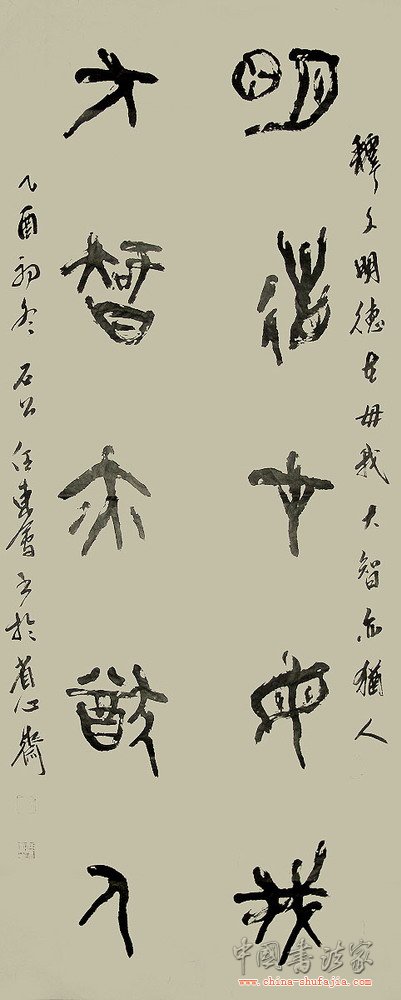 釋文明德在毋我大智亦猶人
明德在毋我
大智亦猶人
乙酉初冬石公任東書於省心齋
中國書法家
www.china-shufajia.com